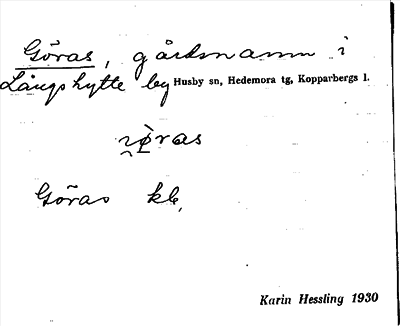 Göras, gårdsnamn i
Långshytte by Husby sn, Hedemora tg, Kopparbergs l.
Göras kb,
Karin Hessling 1930